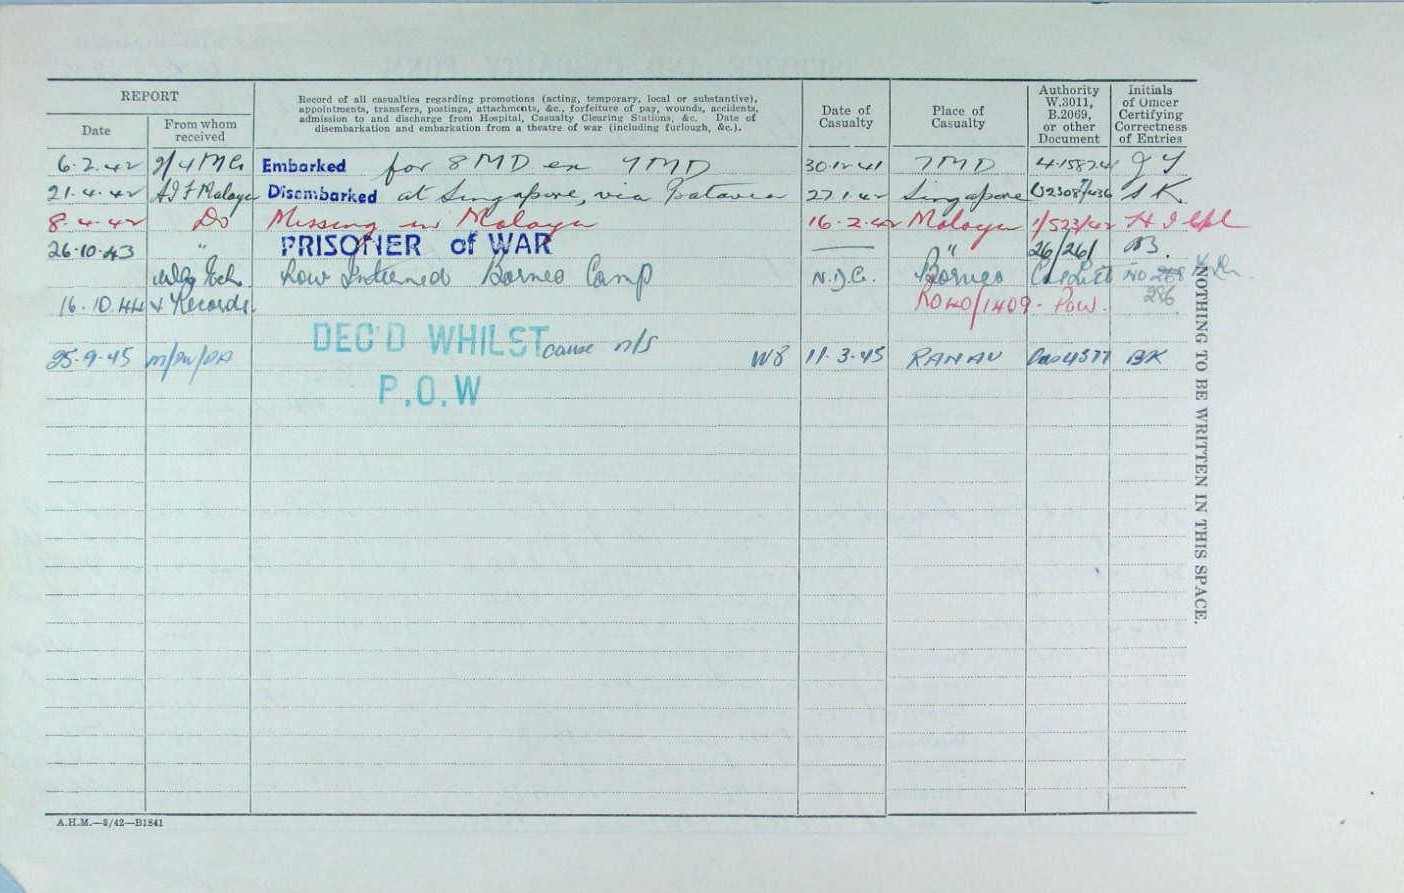 REPORT
Date
From whom received
Record of all casualties regarding promotions (acting, temporary, local or substantive),
appointments, transfers, postings, attachments, &c., forfeiture of pay, wounds, accidents,
admission to and discharge from Hospital, Casualty Clearing Stations, &c. Date of
disembarkation and embarkation from a theatre of war (including furlough, &c.).
Date of Casualty
Place of Casualty
Authority W.3011, B.2069, or other Document
Initials of Officer Certifying Correctness of Entries
6.2.42 2/4 MG Embarked for 8MD ex 7MD 30.12.41 7MD 4.15824
21.4.42 AIF Malaya Disembarked at Singapore, via Batavia 27.1.42 Singapore
8.4.42 Do Missing in Malaya 16.2.42 Malaya 1/523/42
26.10.43 " PRISONER of WAR " 26/261
Now Interned Borneo Camp Borneo
16.10.44 & Records. Po40/1409 - Pow.
286
DEC'D WHILST cause n/s
25.9.45 W8 11.3.45 RANAU BK
P.O.W
NOTHING TO BE WRITTEN IN THIS SPACE.
A.H.M.—3/42—B1841